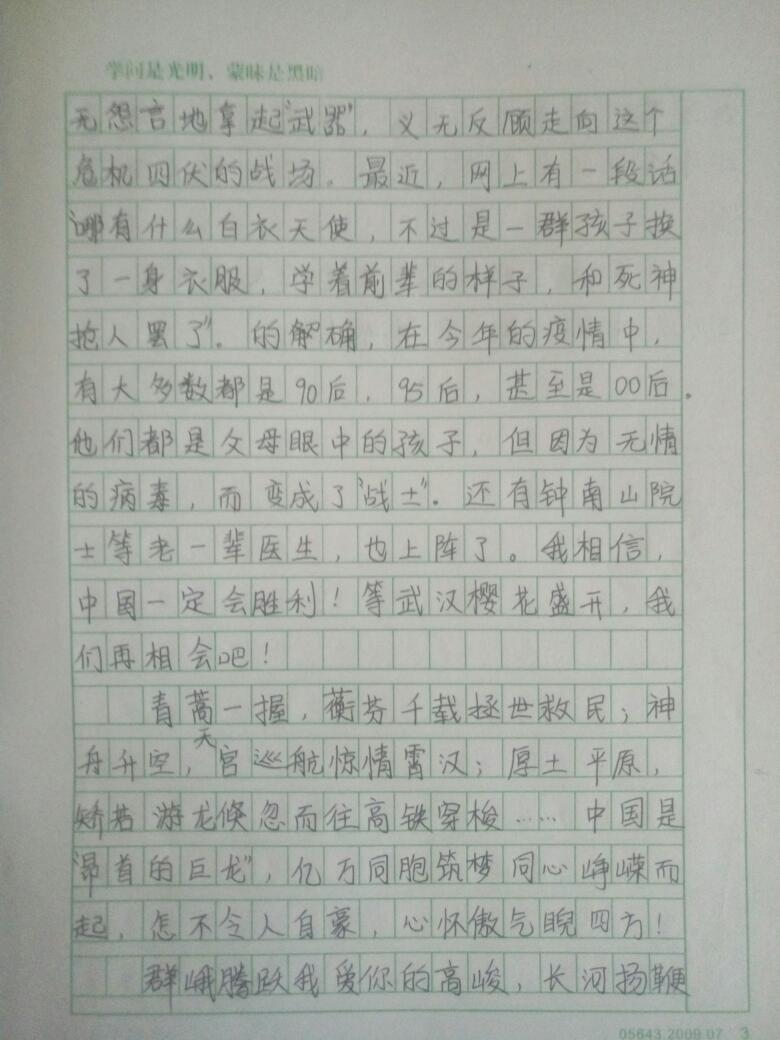 学问是光明、蒙昧是黑暗
无怨言地拿起“武器”，义无反顾走向这个
危机四伏的战场。最近，网上有一段话
“哪有什么白衣天使，不过是一群孩子换
了一身衣服，学着前辈的样子，和死神
抢人罢了”。的解确，在今年的疫情中，
有大多数都是90后，95后，甚至是00后。
他们都是父母眼中的孩子，但因为无情
的病毒，而变成了“战士”。还有钟南山院
士等老一辈医生，也上阵了。我相信，
中国一定会胜利！等武汉樱花盛开，我
们再相会吧！
青蒿一握，蘅芬千载拯世救民；神
舟升空，天宫巡航惊情霄汉；厚土平原，
矫若游龙倏忽而往高铁穿梭……中国是
“昂首的巨龙”，亿万同胞筑梦同心峥嵘而
起，怎不令人自豪，心怀傲气睨四方！
群峨腾跃我爱你的高峻，长河扬鞭
05643.2009.07 3